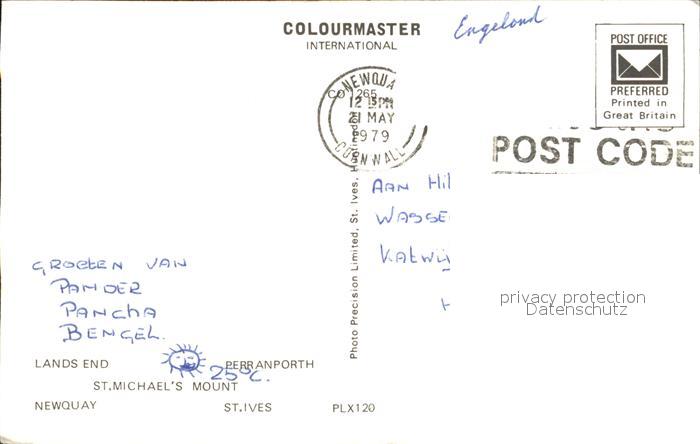 COLOURMASTER
INTERNATIONAL
Engeland
POST OFFICE
PREFERRED
Printed in
Great Britain
NEWQUA
CO 1265
12 15PM
21 MAY
1979
CORNWALL
POST CODE
Photo Precision Limited, St. Ives,
AAN Hil
WASSE
KATWIJ
privacy protection
Datenschutz
GROETEN VAN
PANDER
PANCHA
BENGEL.
25°C.
LANDS END PERRANPORTH
ST.MICHAEL'S MOUNT
NEWQUAY ST.IVES PLX120